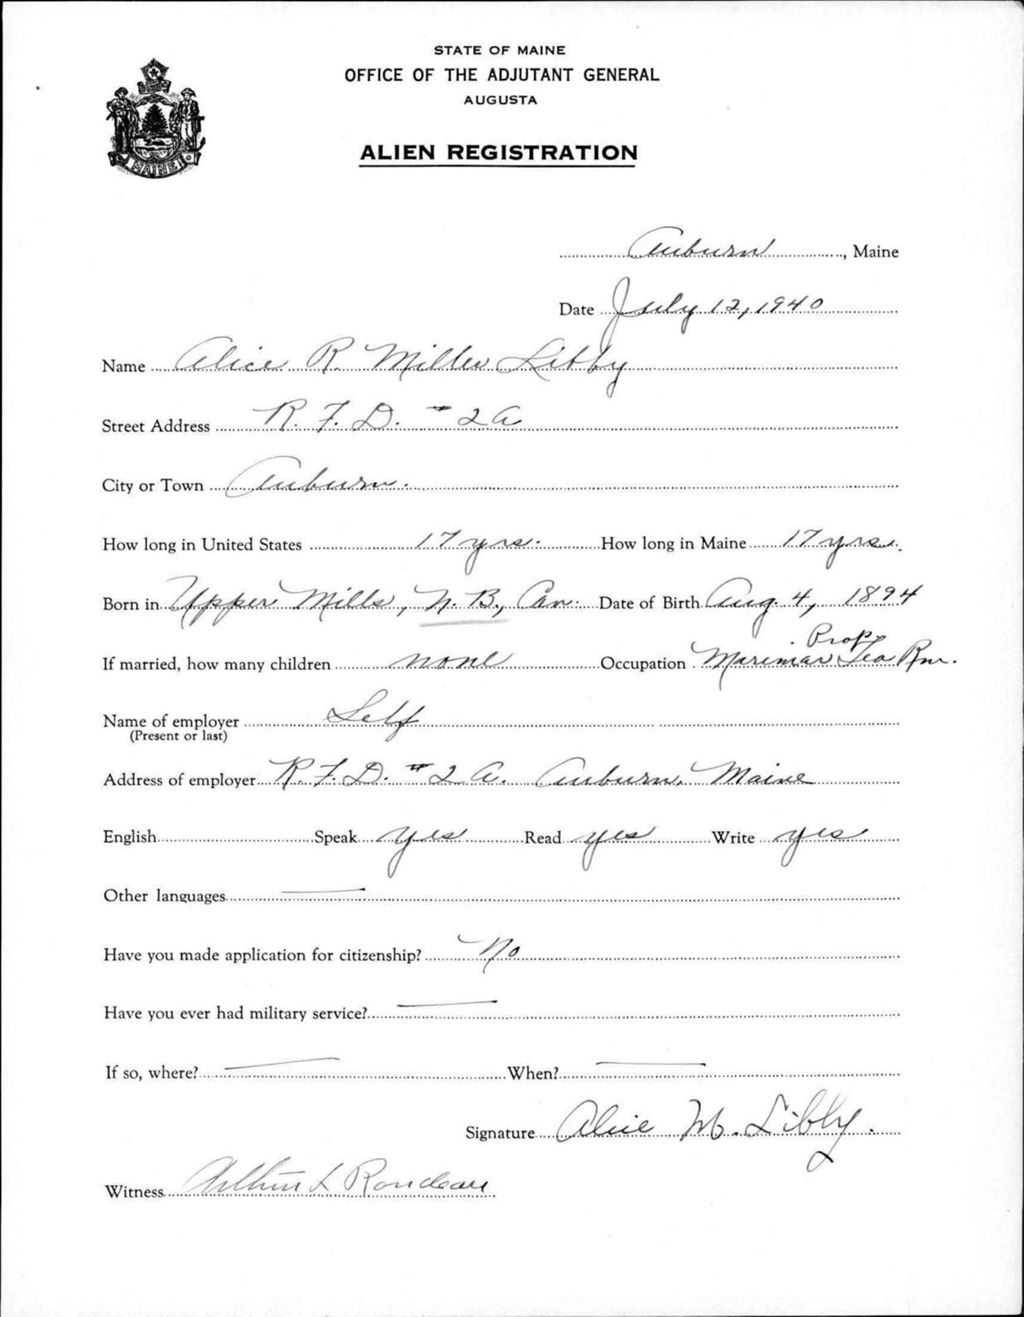 STATE OF MAINE
OFFICE OF THE ADJUTANT GENERAL
AUGUSTA
ALIEN REGISTRATION
MAINE
Auburn, Maine
Date July 12, 1940
Name Alice R. Miller Libby
Street Address R. F. D. #2A
City or Town Auburn.
How long in United States 17 yrs. How long in Maine 17 yrs.
Born in Upper Mills, N. B., Can. Date of Birth Aug. 4, 1894
Prop
If married, how many children none Occupation Marimar Tea Rm.
Name of employer Self
(Present or last)
Address of employer R. F. D. #2 A. Auburn, Maine
English Speak yes Read yes Write yes
Other languages
Have you made application for citizenship? No
Have you ever had military service?
If so, where? When?
Signature Alice M. Libby.
Witness Arthur L Rondeau